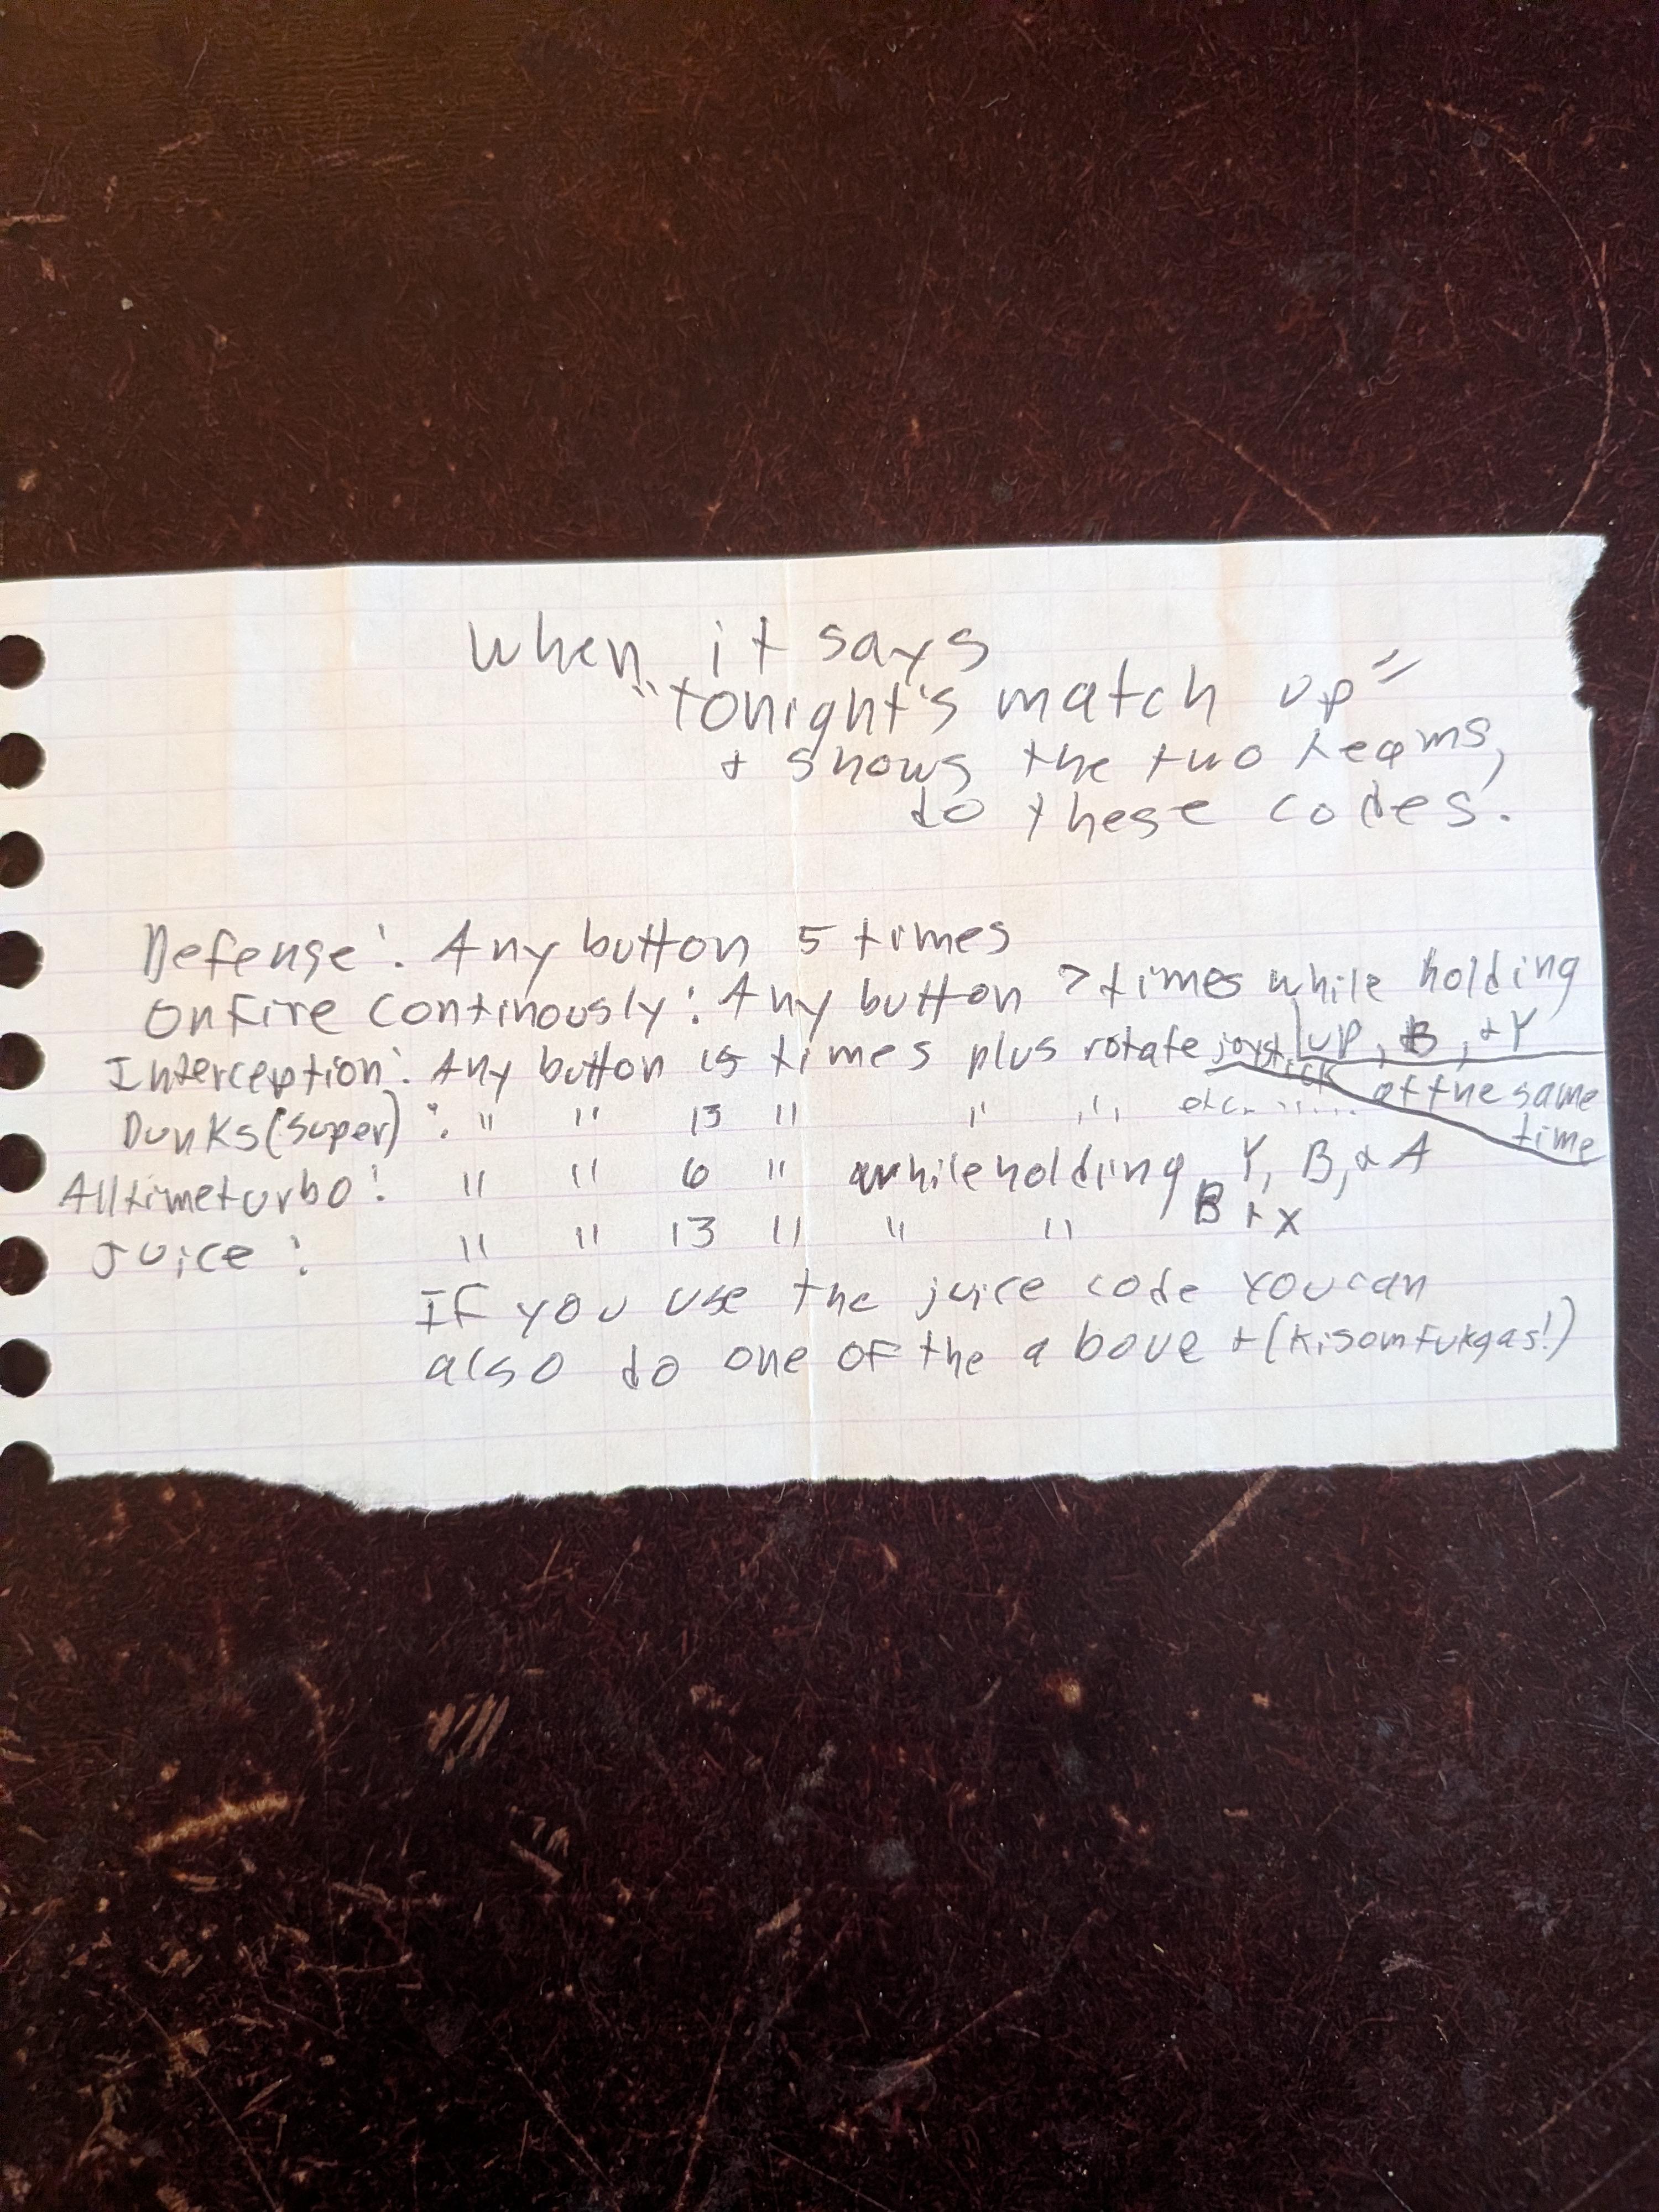 When it says
"tonight's match up"
+ shows the two teams,
do these codes.
Defense: Any button 5 times
On Fire continously: Any button 7 times while holding up, B, + Y
Interception: Any button 15 times plus rotate joystick at the same time
Dunks (super): " " 13 " " " etc. ......
All time turbo: " " 6 " while holding Y, B, + A
Juice: " " 13 " " " B + X
If you use the juice code you can
also do one of the above +